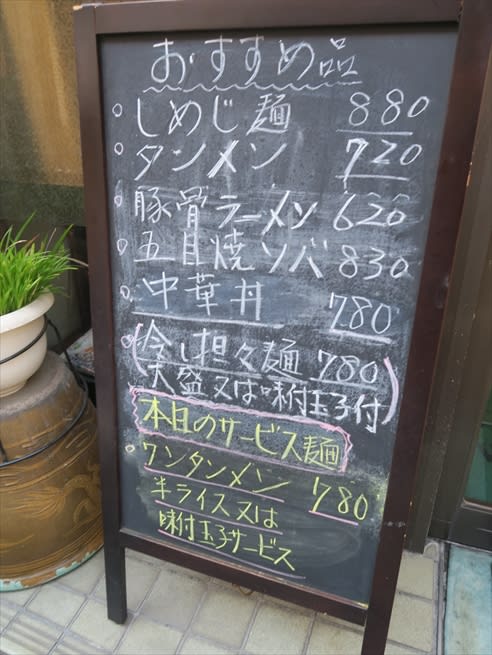 おすすめ品
○しめじ麺 880
○タンメン 720
○豚骨ラーメン 620
○五目焼ソバ 830
○中華丼 780
○(冷し担々麺 780
大盛又は味付玉子付)
本日のサービス麺
○ワンタンメン 780
半ライス又は
味付玉子サービス